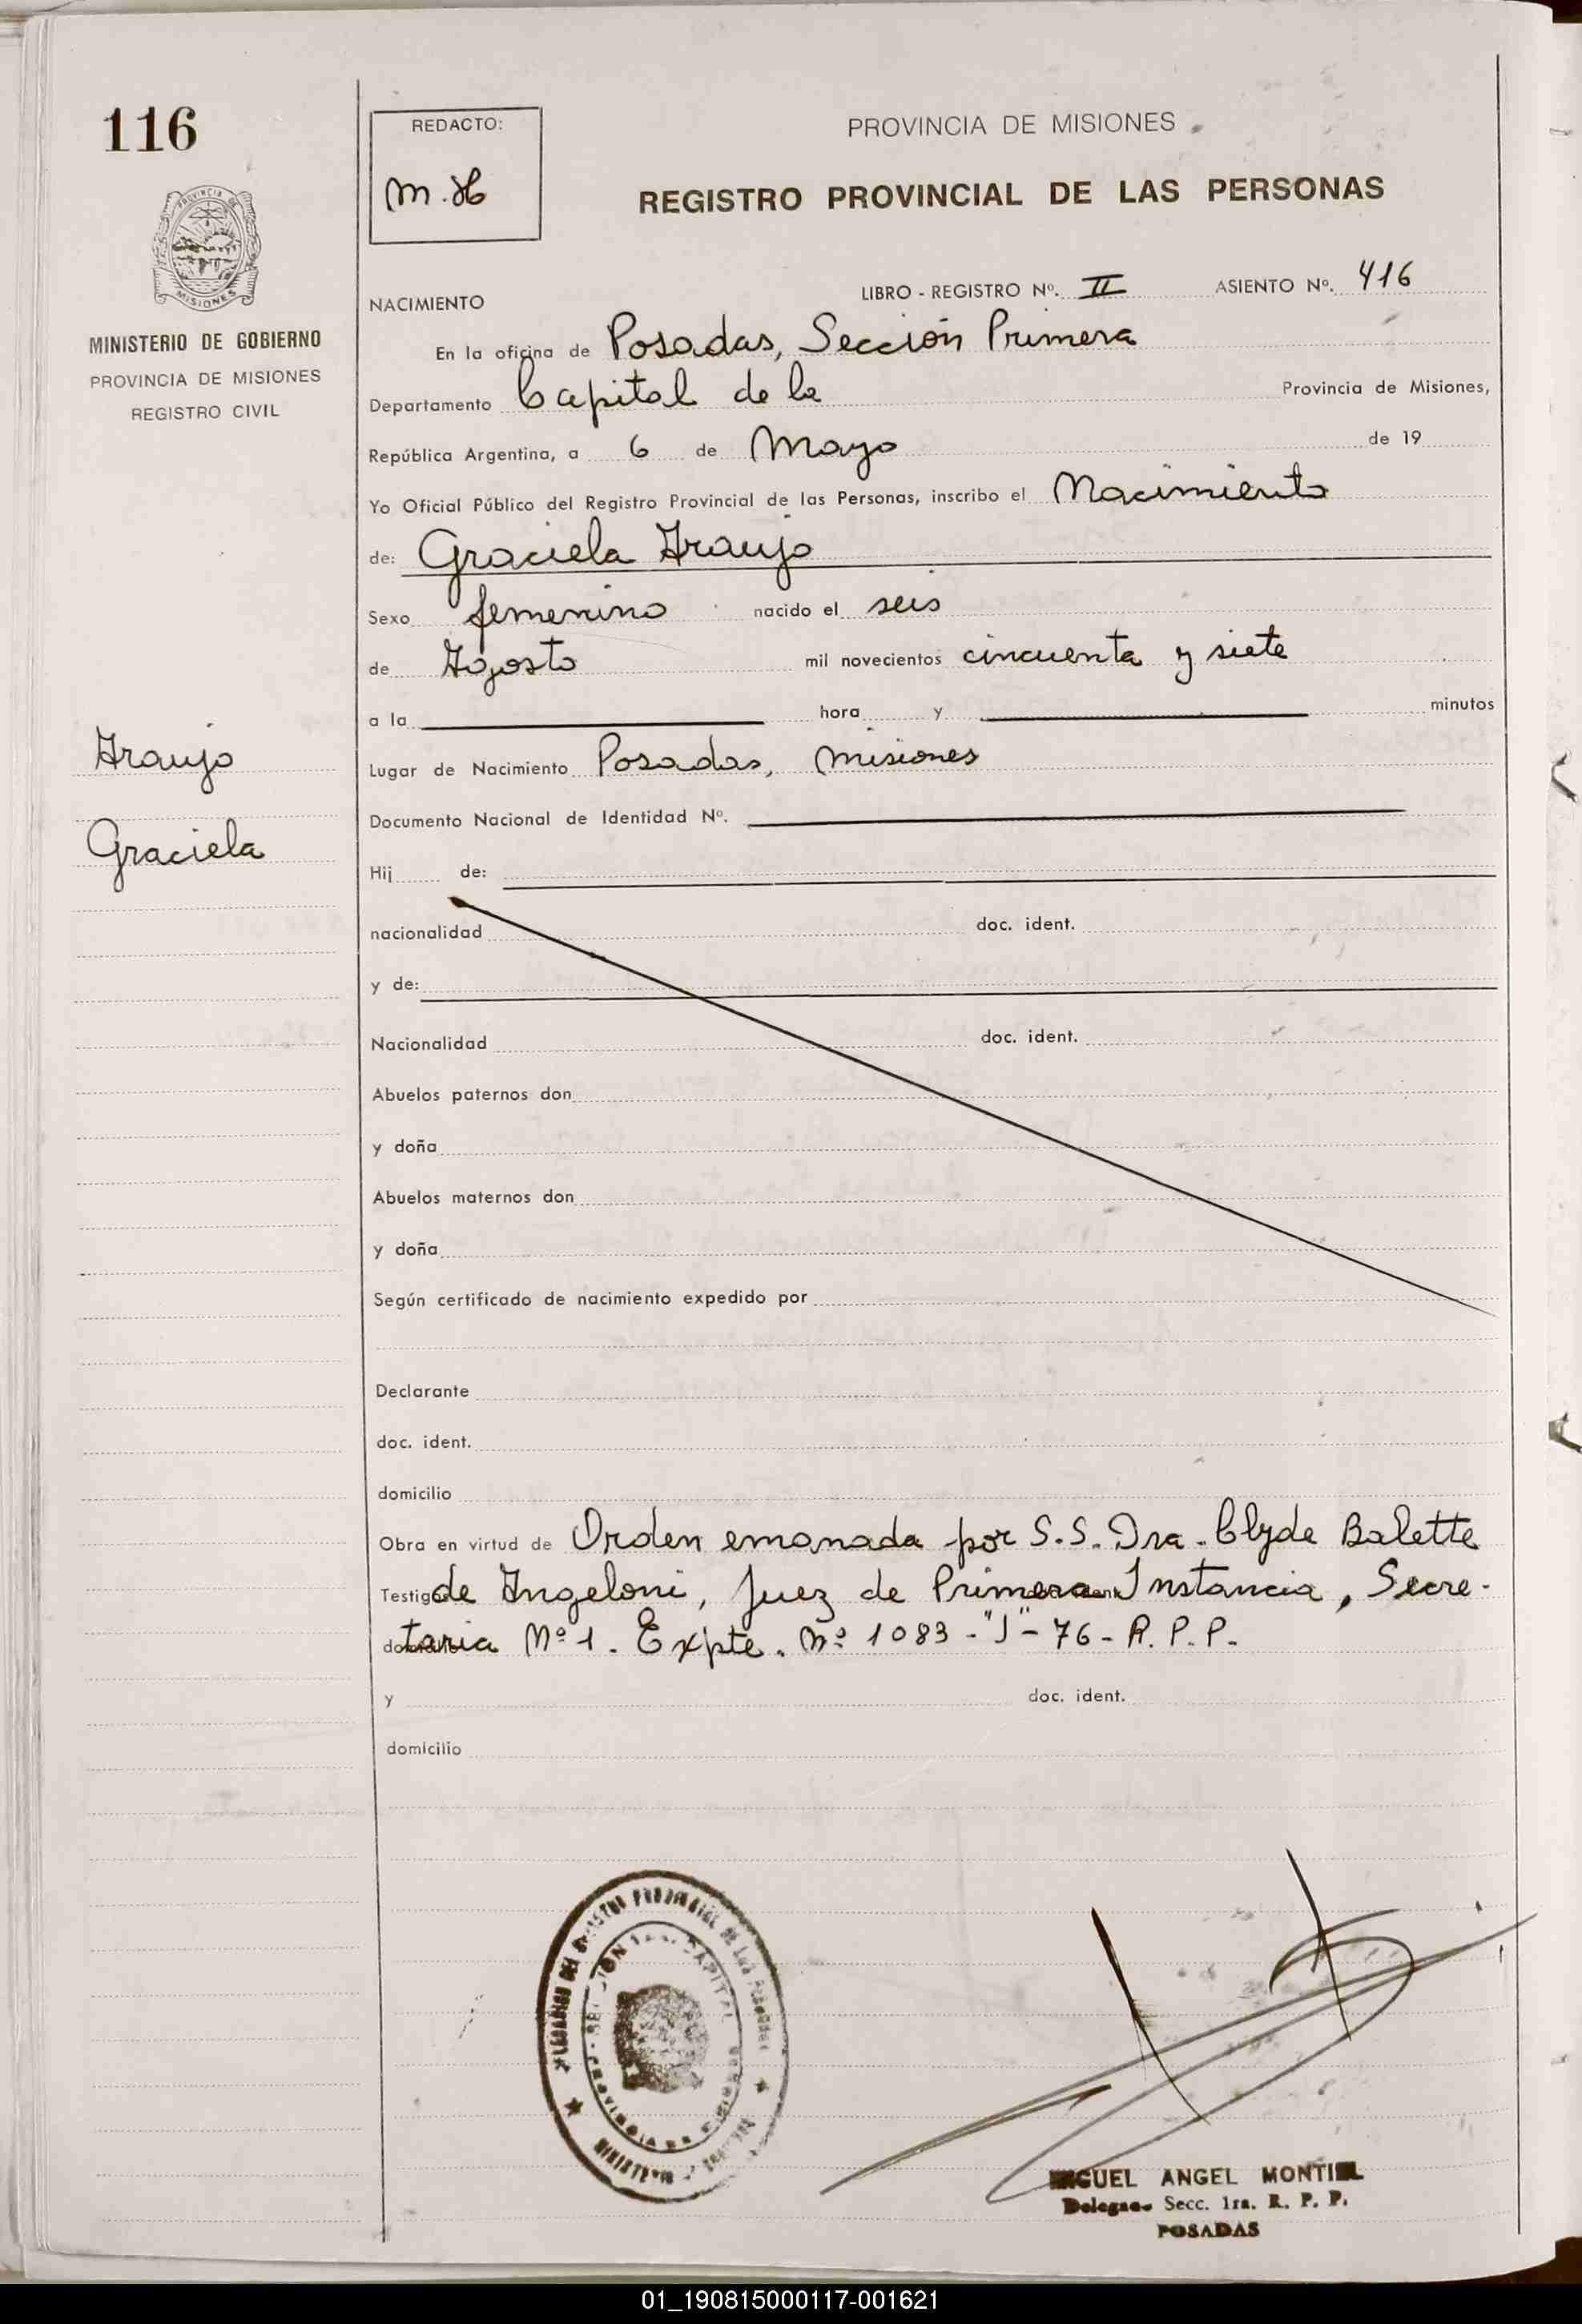 116
REDACTO:
m. H
PROVINCIA DE MISIONES
REGISTRO PROVINCIAL DE LAS PERSONAS
PROVINCIA DE
MISIONES
MINISTERIO DE GOBIERNO
PROVINCIA DE MISIONES
REGISTRO CIVIL
NACIMIENTO
LIBRO - REGISTRO Nº. II ASIENTO Nº. 416
En la oficina de Posadas, Sección Primera
Departamento Capital de la Provincia de Misiones,
República Argentina, a 6 de Mayo de 19
Yo Oficial Público del Registro Provincial de las Personas, inscribo el Nacimiento
de: Graciela Araujo
Sexo femenino nacido el seis
de Agosto mil novecientos cincuenta y siete
a la hora y minutos
Araujo
Lugar de Nacimiento Posadas, Misiones
Documento Nacional de Identidad Nº.
Graciela
Hij de:
nacionalidad doc. ident.
y de:
Nacionalidad doc. ident.
Abuelos paternos don
y doña
Abuelos maternos don
y doña
Según certificado de nacimiento expedido por
Declarante
doc. ident.
domicilio
Obra en virtud de Orden emanada por S.S. Dra. Clyde Balette
Testigo de Angeloni, Juez de Primera Instancia, Secre-
taria Nº 1. Expte. Nº 1083-"J"-76-R.P.P.
y doc. ident.
domicilio
MIGUEL ANGEL MONTIEL
Delegado Secc. 1ra. R. P. P.
POSADAS
01_190815000117-001621